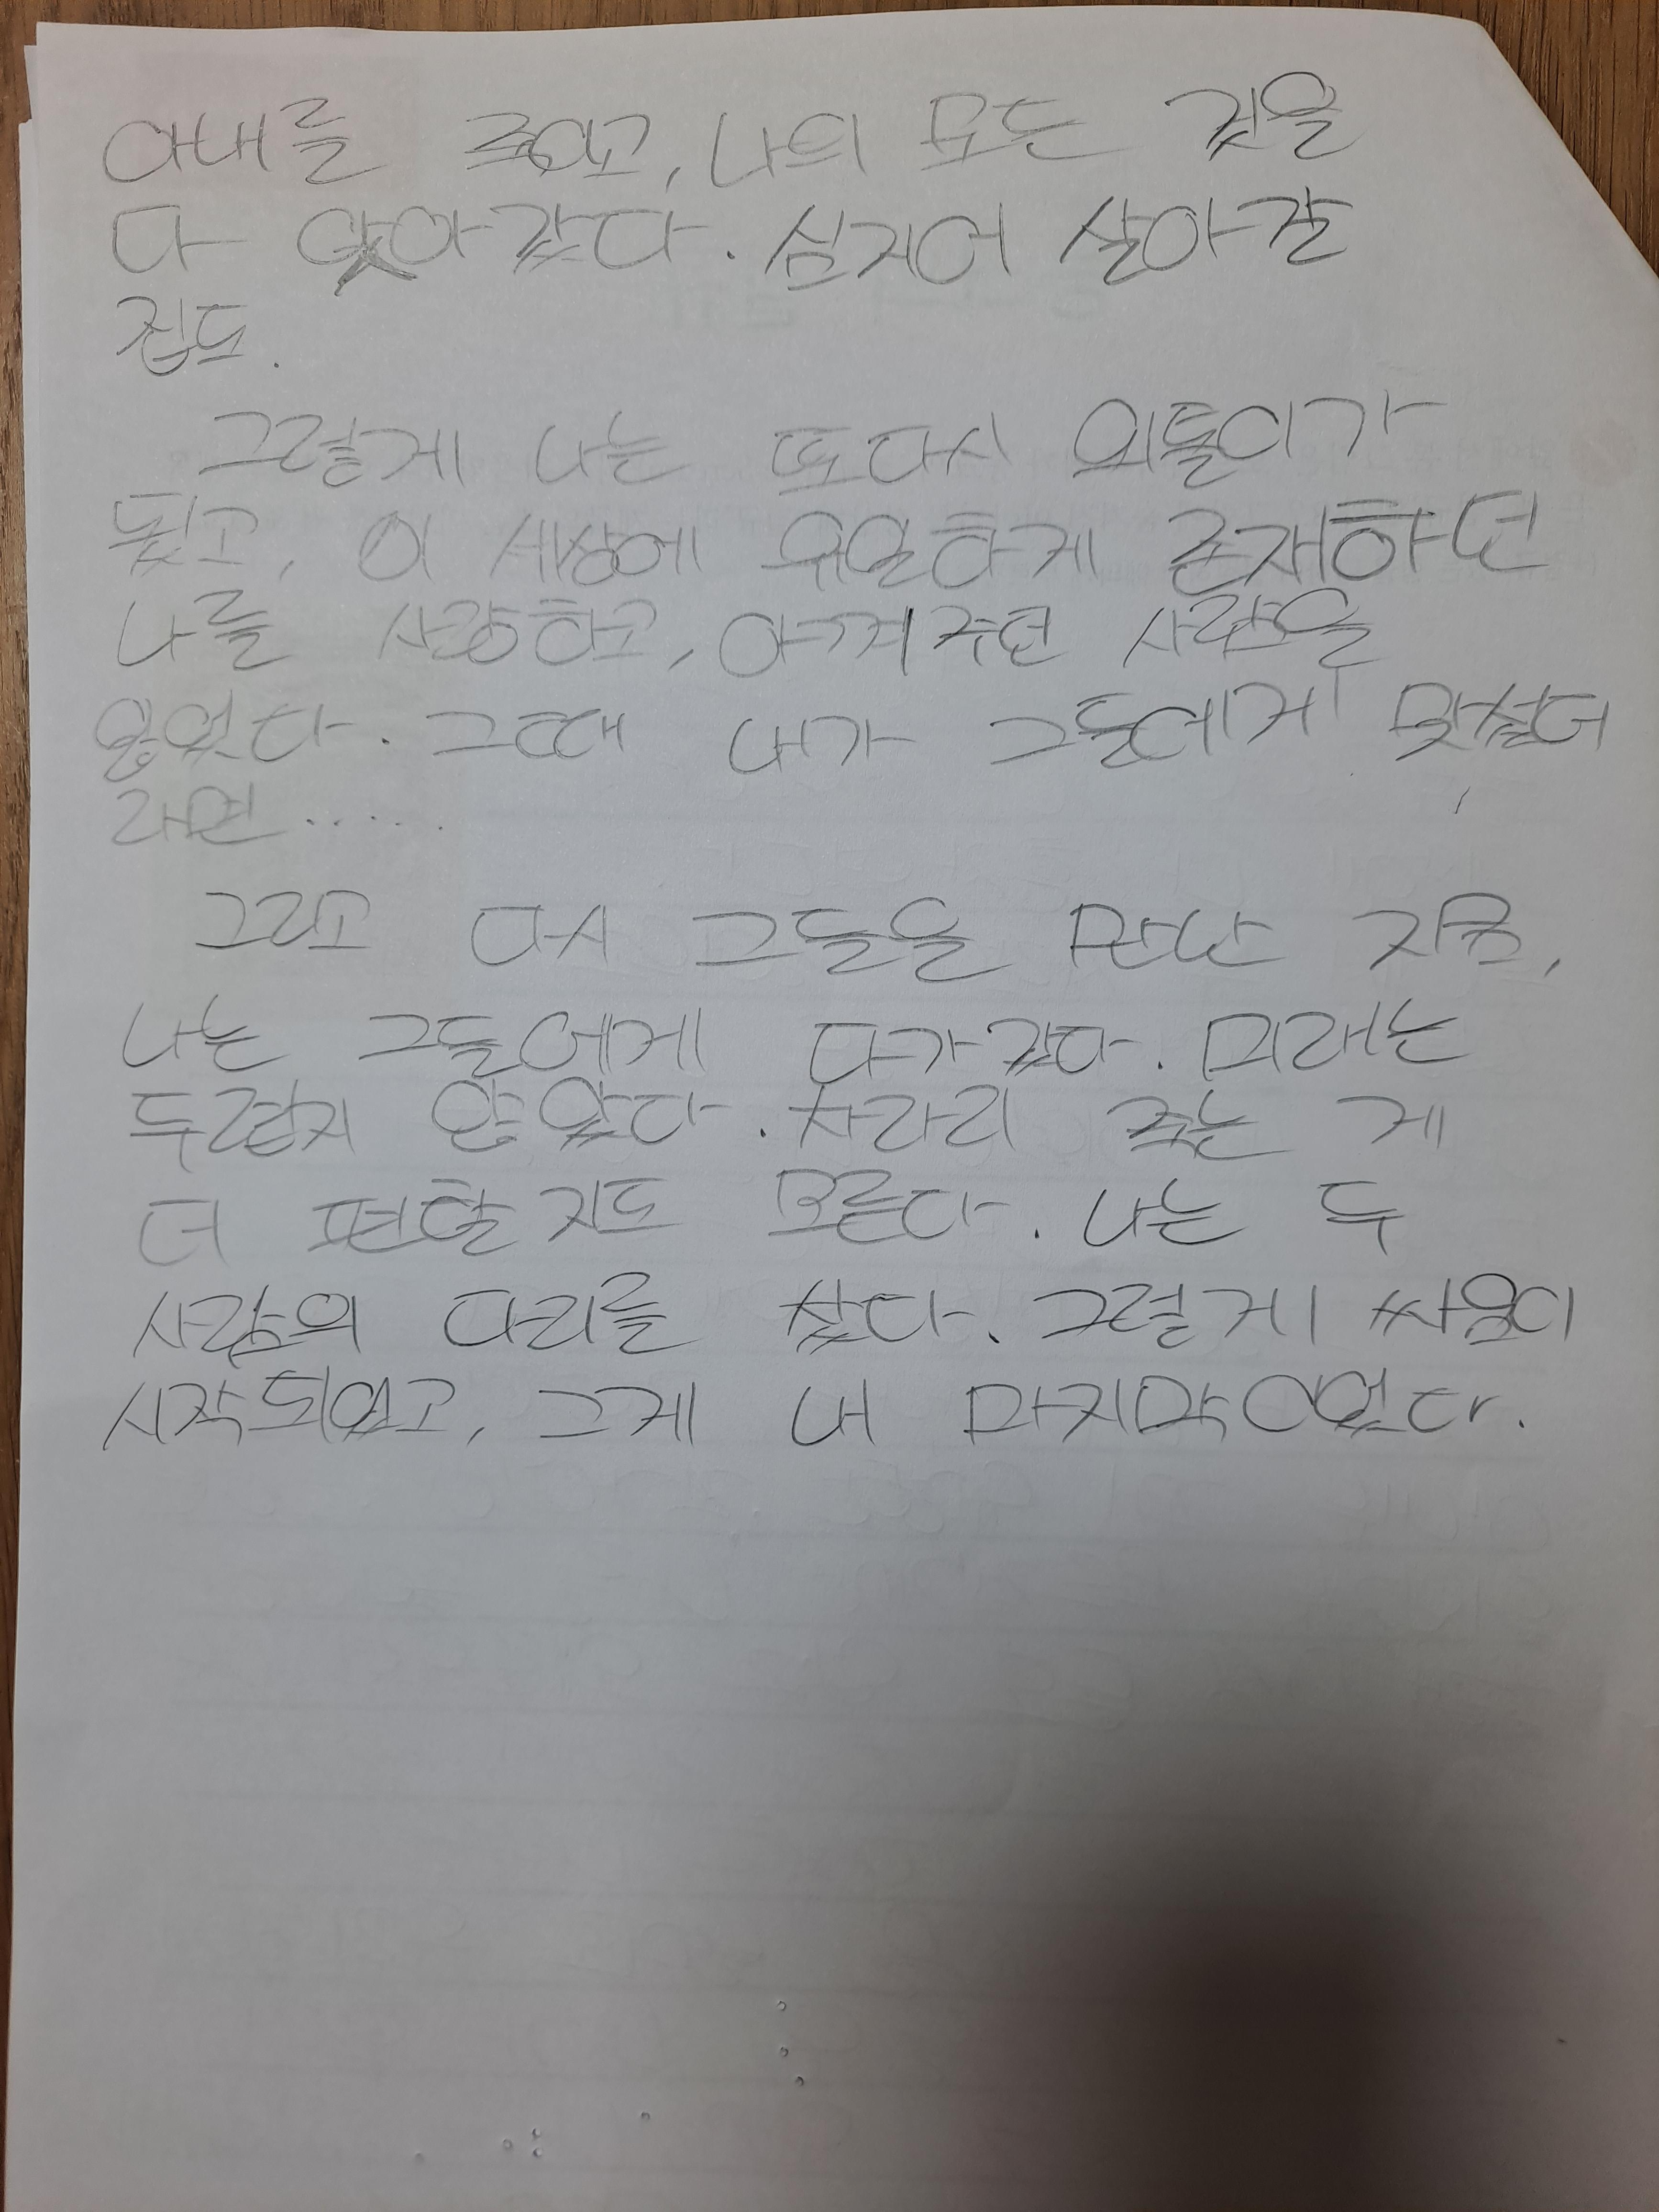 아내를 죽이고, 나의 모든 것을
다 앗아갔다. 심지어 살아갈
집도.
그렇게 나는 또다시 외톨이가
됐고, 이 세상에 유일하게 존재하던
나를 사랑하고, 아껴주던 사람을
잃었다. 그때 내가 그들에게 맞섰더
라면.....
그리고 다시 그들을 만난 지금,
나는 그들에게 다가갔다. 미래는
두렵지 않았다. 차라리 죽는 게
더 편할지도 모른다. 나는 두
사람의 다리를 찼다. 그렇게 싸움이
시작되었고, 그게 내 마지막이었다.